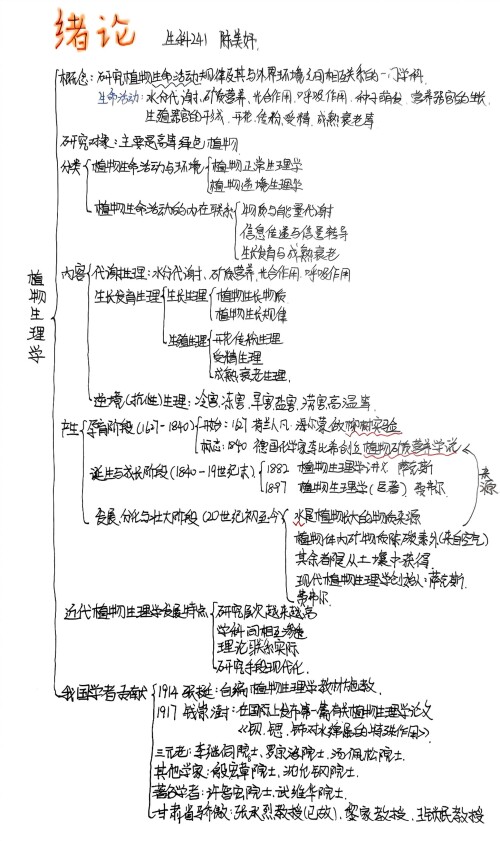 绪论 生科241 陈美妍
植物生理学
概念：研究植物生命活动规律及其与外界环境之间相互关系的一门学科
生命活动：水分代谢、矿质营养、光合作用、呼吸作用、种子萌发、营养器官的生长、
生殖器官的形成、开花、传粉、受精、成熟衰老等
研究对象：主要是高等绿色植物
分类 植物生命活动与环境 植物正常生理学
植物逆境生理学
植物生命活动的内在联系 物质与能量代谢
信息传递与信号转导
生长发育与成熟衰老
内容 代谢生理：水分代谢、矿质营养、光合作用、呼吸作用
生长发育生理 生长生理 植物生长物质
植物生长规律
生殖生理 开花传粉生理
受精生理
成熟衰老生理
逆境(抗性)生理：冷害、冻害、旱害、盐害、涝害、高温等
产生 孕育阶段(1627-1840) 开始：1627 荷兰人凡·海尔蒙做柳树实验
标志：1840 德国化学家李比希创立植物矿质营养学说
诞生与成长阶段(1840-19世纪末) 1882 植物生理学讲义 萨克斯
1897 植物生理学(巨著) 费弗尔
来源
发展、分化与壮大阶段(20世纪初至今) 水是植物最大的物质来源
植物体内矿物质除碳素外(来自空气)
其余都是从土壤中获得
现代植物生理学创始人：萨克斯、
费弗尔
近代植物生理学发展特点 研究层次越来越高
学科间相互渗透
理论联系实际
研究手段现代化
我国学者贡献 1914 张挺：自编植物生理学教材施教
1917 钱崇澍：在国际上发布第一篇有关植物生理学论文
《钡、锶、铈对水绵属的特殊作用》
三元老：李继侗院士、罗宗洛院士、汤佩松院士
其他学家：殷宏章院士、沈允钢院士
著名学者：许智宏院士、武维华院士
甘肃省骄傲：张承烈教授(已故)、黎家教授、教授